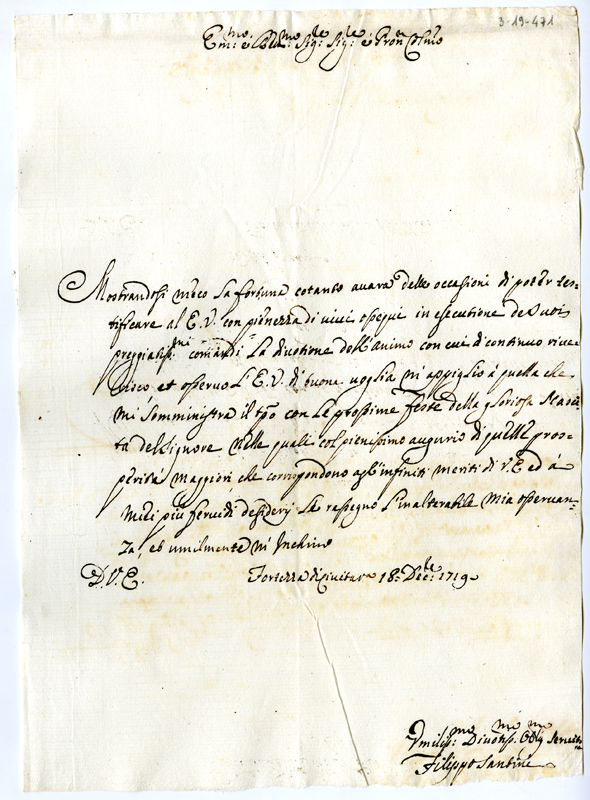 3-19-471
Em:mo e Rev:mo Sig:re Sig:re e Pron Col:mo
Mostrandosi meco la fortuna cotanto avara delle occasioni di poter tes=
tificare al E. V. con pienezza di vivi ossequi in esecutione de Suoi
preggiatiss:mi comandi La divotione dell'animo con cui di continuo rive=
risco et osservo L'E. V. di buona voglia m'appiglio à quella che
mi somministra il tpo con Le prossime feste della gloriosa Nasci=
ta del Signore nelle quali col pienissimo augurio di quelle pros=
perità maggiori che corrispondono agl'infiniti meriti di V. E ed à
miei più fervidi desiderij Le rassegno L'inalterabile mia osservan=
za, et umilmente m'Inchino
D. V. E. Fortezza di Civitara 18: Dec:bre 1719
Vmiliss:mo Divotiss:mo Obl:mo Servit:re
Filippo Santini